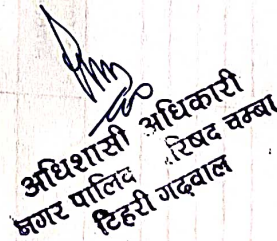 अधिशासी अधिकारी
नगर पालिव .रिषद चम्बा
टिहरी गढ़वाल